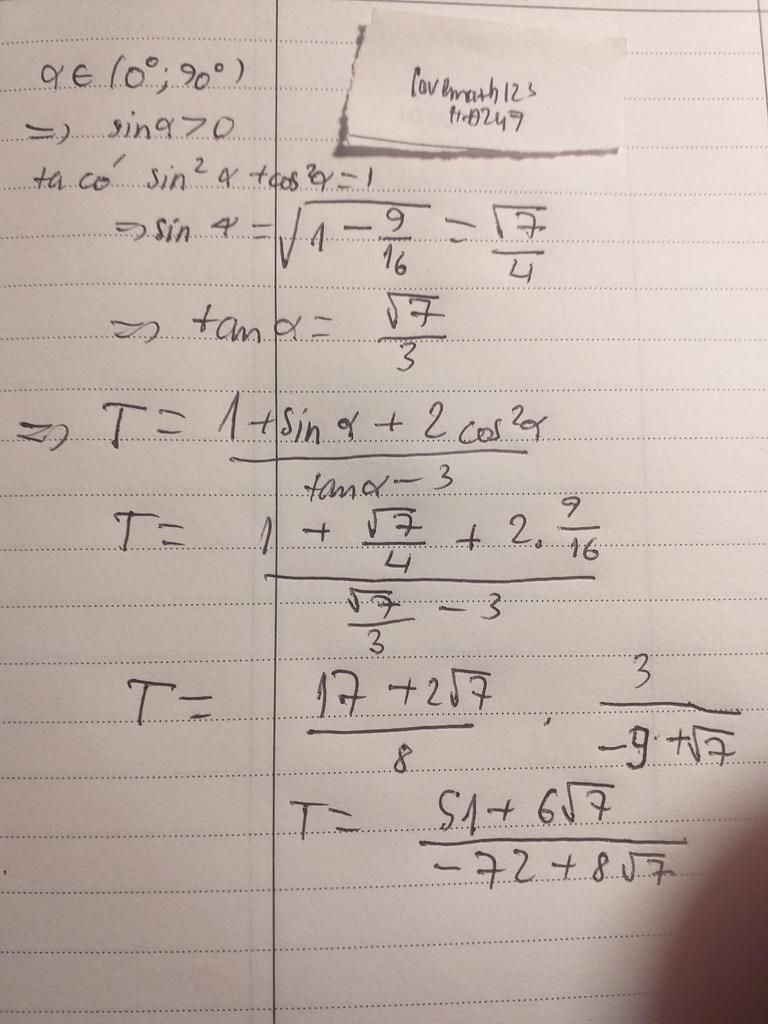 α ∈ (0°; 90°)
⇒ sin α > 0
ta có sin² α + cos²α = 1
⇒ sin α = √(1 - 9/16) = √7/4
⇒ tan α = √7/3
⇒ T = (1 + sin α + 2 cos²α)/(tan α - 3)
T = (1 + √7/4 + 2. 9/16)/(√7/3 - 3)
T = (17 + 2√7)/8 . 3/(-9 + √7)
T = (51 + 6√7)/(-72 + 8√7)